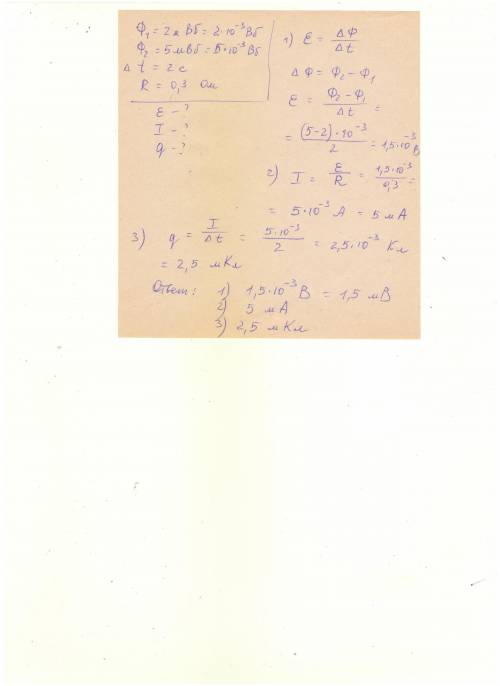 Φ₁ = 2 мВб = 2·10⁻³ Вб
Φ₂ = 5 мВб = 5·10⁻³ Вб
Δt = 2 с
R = 0,3 Ом
ε - ?
I - ?
q - ?
1) ε = ΔΦ/Δt
ΔΦ = Φ₂ - Φ₁
ε = (Φ₂ - Φ₁)/Δt =
= (5-2)·10⁻³/2 = 1,5·10⁻³ В
2) I = ε/R = 1,5·10⁻³/0,3 =
= 5·10⁻³ А = 5 мА
3) q = I/Δt = 5·10⁻³/2 = 2,5·10⁻³ Кл
= 2,5 мКл
Ответ: 1) 1,5·10⁻³ В = 1,5 мВ
2) 5 мА
3) 2,5 мКл